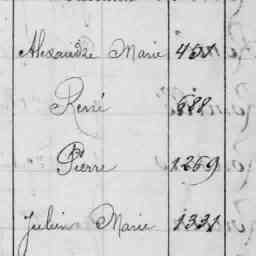 Alexandre Marie 451
René 688
Pierre 1259
Julien Marie 1331